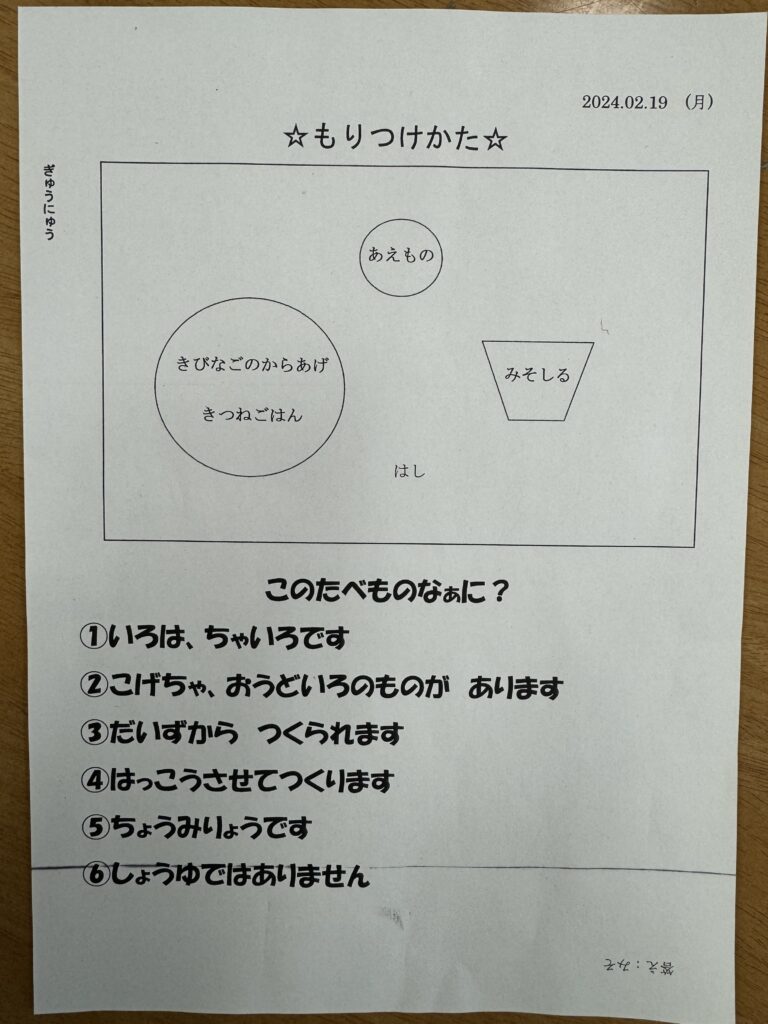 2024.02.19 (月)
☆もりつけかた☆
ぎゅうにゅう
あえもの
きびなごのからあげ
きつねごはん
みそしる
はし
このたべものなぁに？
①いろは、ちゃいろです
②こげちゃ、おうどいろのものが あります
③だいずから つくられます
④はっこうさせてつくります
⑤ちょうみりょうです
⑥しょうゆではありません
答え：みそ